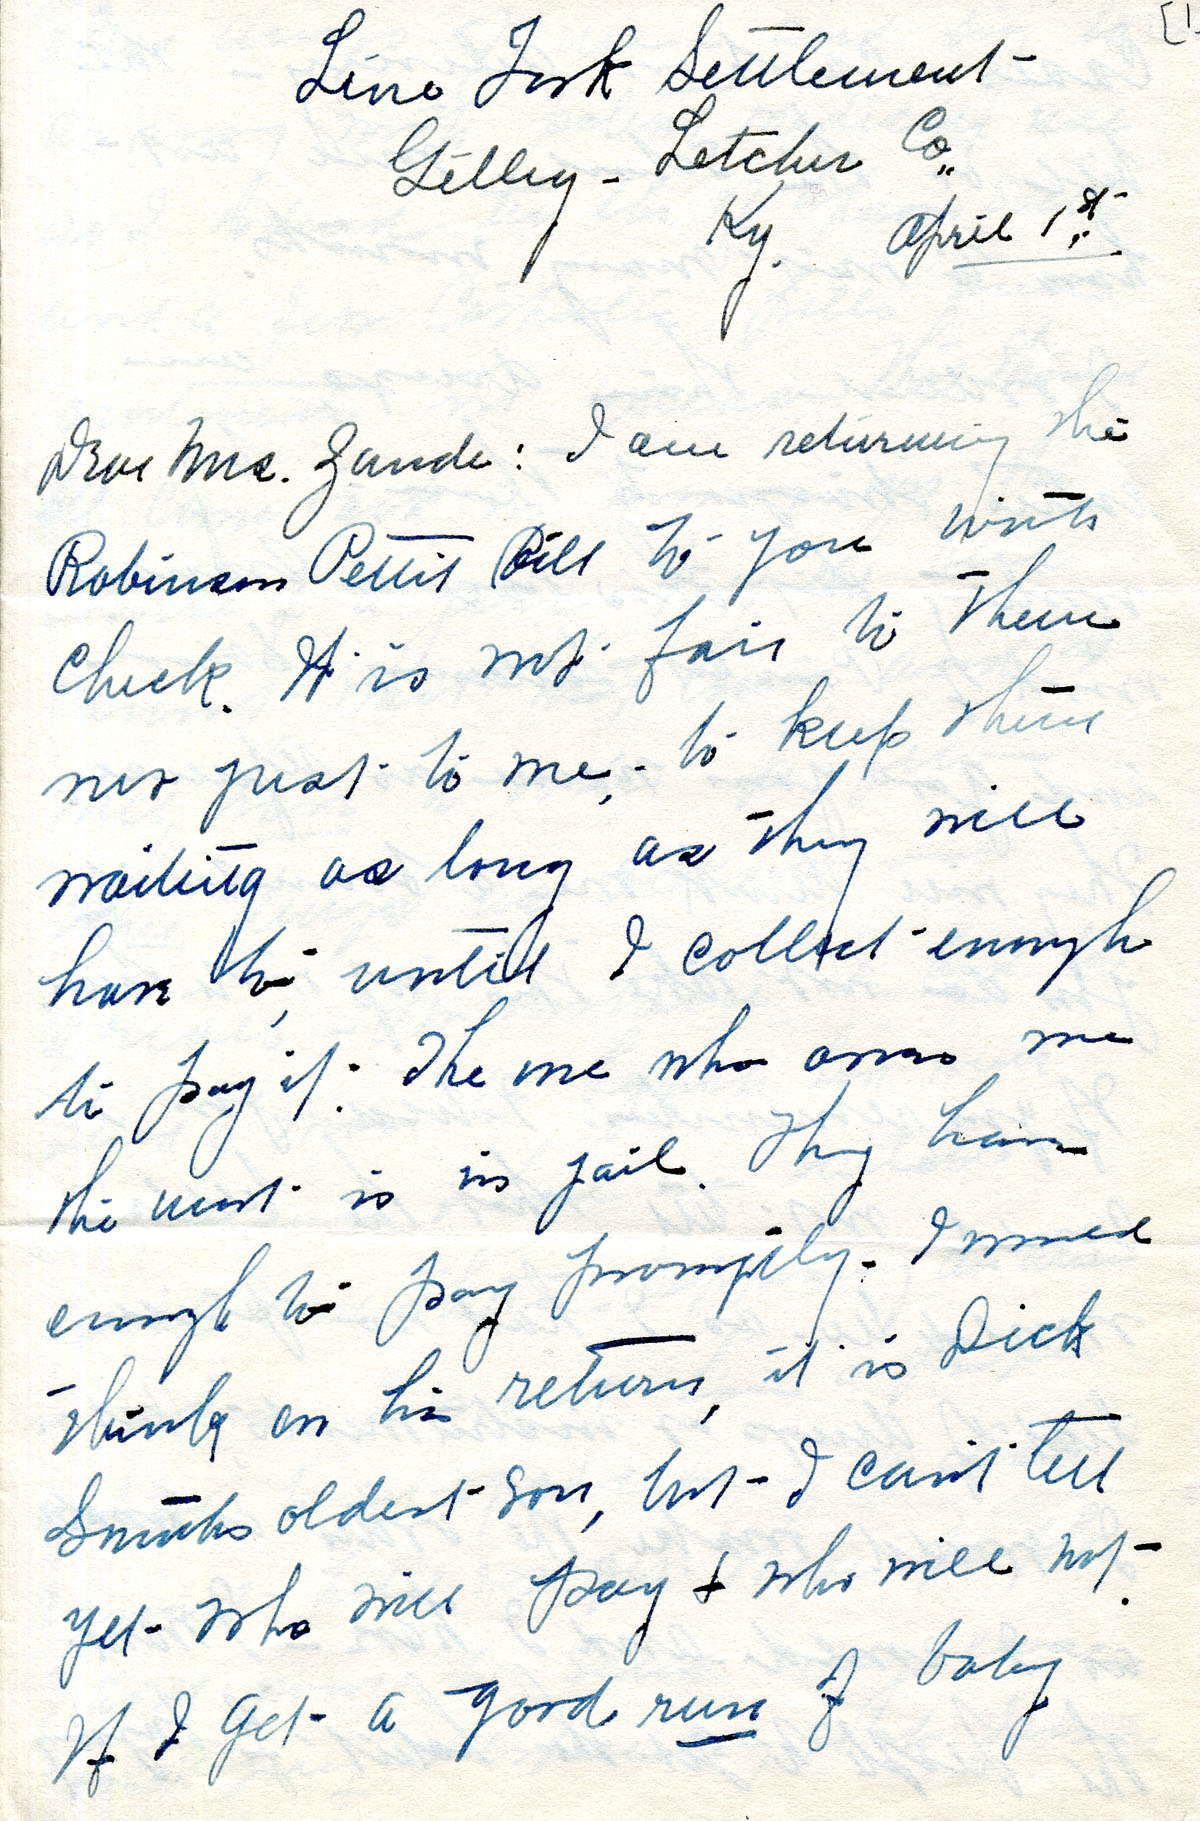 [1]
Line Fork Settlement -
Gilley - Letcher Co.,
Ky. April 1st.
Dear Mrs. Zande: I am returning the
Robinson Pettit Bill to you with
check. It is not fair to them
nor just to me, - to keep them
waiting as long as they will
have to, until I collect enough
to pay it. The one who owes me
the most is in jail. They have
enough to pay promptly - I would
think on his return, it is Dick
Smiths oldest son, but - I can't tell
yet - who will pay & who will not.
If I get a good run of baby